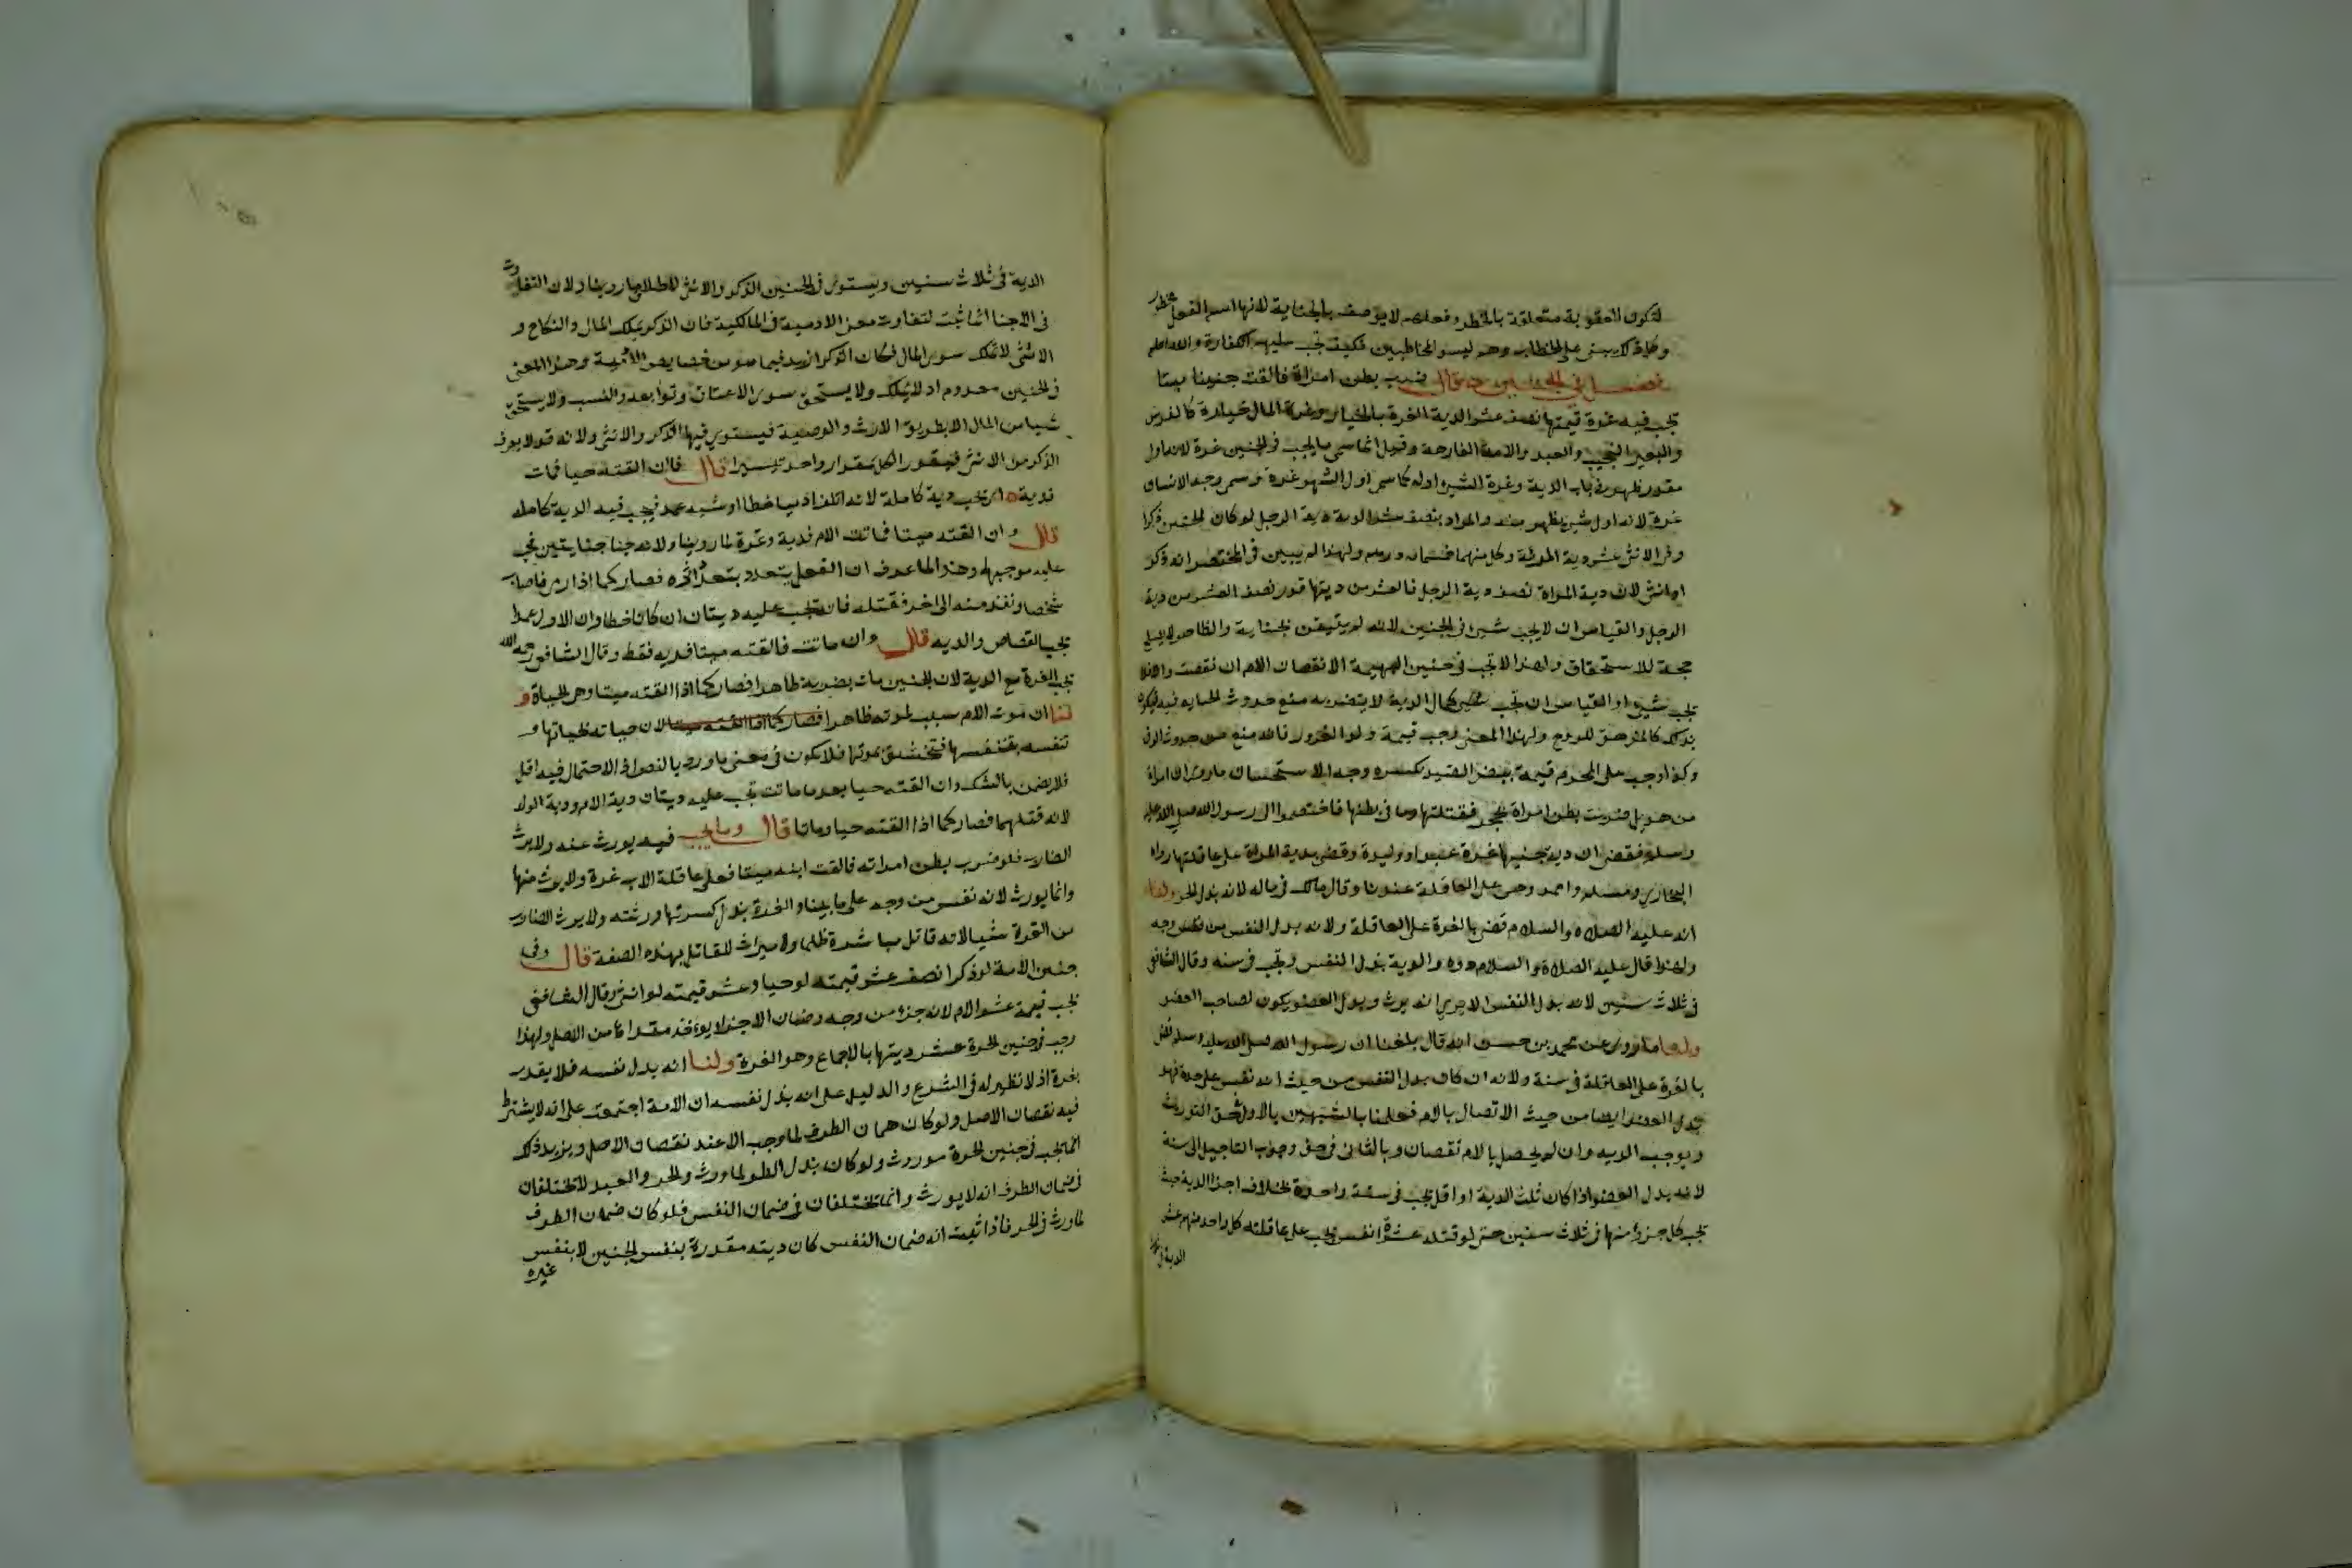 لتكون العقوبة متعلقة بالخطر وفعلهم لا يوصف بالجناية لانها اسم لفعل محظور
على الخطاب وهم ليسو المخاطبين فكيف تجب عليهم الكفارة والله اعلم
فصل في الجنين قال ضرب بطن امراة فالقت جنينا ميتا
تجب فيه غرة قيمتها نصف عشر الدية الغرة بالخيار وغرة المال خياره كالفرس
والبعير النجيب والعبد والامة الفارهة وقيل انما سمي ما يجب في الجنين غرة لانه اول
مقدر ظهر في باب الدية وغرة الشي اوله كما سمي اول الشهر غرة وسمي وجه الانسان
غرة لانه اول شي يظهر منه والمراد بنصف عشر الدية دية الرجل لو كان الجنين ذكرا
وفي الانثى عشر دية المراة وكل منهما خمسمائة درهم ولهذا لم يبين في المختصر انه ذكر
او انثى لان دية المراة نصف دية الرجل فالعشر من ديتها قدر نصف العشر من دية
الرجل والقياس ان لا يجب شي في الجنين لانه لم يتيقن بحياته والظاهر لا يصلح
حجة للاستحقاق ولهذا لا تجب في جنين البهيمة الا نقصان الام ان نقصت والا فلا
يجب شي او القياس ان تجب كمال الدية لانه بضربه منع حدوث الحياة فيه فيكون
بذلك كالمزهق للروح ولهذا المعنى وجب قيمة ولد المغرور فانه منع من حدوث الرق
وكذا وجب على المحرم قيمة بيض الصيد بكسره وجه الاستحسان ما روي ان امراة
من هذيل ضربت بطن امراة بحجر فقتلتها وما في بطنها فاختصموا الى رسول الله صلى الله عليه
وسلم فقضى ان دية جنينها غرة عبد او وليدة وقضى بدية المراة على عاقلتها رواه
البخاري ومسلم واحمد وهي على العاقلة عندنا وقال مالك في ماله لانه بدل الجزء ولنا
انه عليه الصلاة والسلام قضى بالغرة على العاقلة ولانه بدل النفس من وجه
ولهذا قال عليه الصلاة والسلام دوه والدية بدل النفس وتجب في سنه وقال الشافعي
في ثلاث سنين لانه بدل النفس الا يرى انه يورث وبدل العضو يكون لصاحب العضو
ولنا ما روي عن محمد بن حسن انه قال بلغنا ان رسول الله صلى الله عليه وسلم قضى
بالغرة على العاقلة في سنة ولانه ان كان بدل النفس من حيث انه نفس على حدة فهو
بدل العضو ايضا من حيث الاتصال بالام فعملنا بالشبهين بالاول في حق التوريث
وبوجب الديه وان لم يحصل بالام نقصان وبالثاني في حق وجوب التاجيل الى سنة
لانه بدل العضو اذا كان ثلث الدية او اقل تجب في سنة واحدة بخلاف اجزا الدية حيث
تجب كل جزؤ منها في ثلاث سنين حتى لو قتله عشرة انفس تجب على عاقلته كل واحد منهم عشر
الدية في
الدية في ثلاث سنين ويستوي في الجنين الذكر والانثى لاطلاق ما روينا ولان التفاوت
في الاجنا انما ثبت لتفاوت معنى الادمية في المالكية فان الذكر يملك المال والنكاح و
الانثى لا تملك سوى المال فكان الذكر ازيد فيما هو من خصايص الادمية وهذا المعنى
في الجنين معدوم اذ لا يملك ولا يستحق سوى الاعتاق وتوابعه والنسب ولا يستحق
شيا من المال الا بطريق الارث والوصية فيستوي فيها الذكر والانثى ولانه قد لا يعرف
الذكر من الانثى فيقدر الكل بمقدار واحد تيسيرا قال فان القته حيا فمات
فدية اي تجب دية كاملة لانه اتلف ادميا خطا او شبه عمد فيجب فيه الدية كامله
قال وان القته ميتا فماتت الام فدية وغرة لما روينا ولانه جنا جنايتين فيجب
عليه موجبهما وهذا لما عرف ان الفعل يتعدد بتعدد اثره فصار كما اذا رمى فاصاب
شخصا ونفذ منه الى اخر فقتله فانه تجب عليه ديتان ان كانا خطا وان الاول عمدا
تجب القصاص والديه قال وان ماتت فالقته ميتا فديه فقط وقال الشافعي رحمه الله
تجب الغرة مع الدية لان الجنين مات بضربه ظاهرا فصار كما اذا القته ميتا وهي بالحياة و
لنا ان موت الام سبب لموته ظاهرا فصار كما اذا القته ميتا لان حياته بحياتها و
تنفسه بتنفسها فتختنق بموتها فلا يكون في معنى ما ورد به النص اذ الاحتمال فيه اقل
فلا يضمن بالشك وان القته حيا بعد ما ماتت تجب عليه ديتان دية الام ودية الولد
لانه قتلهما فصار كما اذا القته حيا وماتا قال وما يجب فيه يورث عنه ولا يرث
الضارب فلو ضرب بطن امراته فالقت ابنه ميتا فعلى عاقلة الاب غرة ولا يرث منها
وانما يورث لانه نفس من وجه على ما بينا والغرة بدله فيرثها ورثته ولا يورث الضارب
من الغرة شيا لانه قاتل مباشرة ظلما ولا ميراث للقاتل بهذه الصفة قال وفي
جنين الامة لو ذكرا نصف عشر قيمته لو حيا وعشر قيمته لو انثى وقال الشافعي
تجب قيمة عشر الام لانه جزؤ من وجه وضمان الاجزا يؤخذ مقدارها من الاصل ولهذا
وجب في جنين الحرة عشر ديتها بالاجماع وهو الغرة ولنا انه بدل نفسه فلا يقدر
بغرة اذ لا نظير له في الشرع والدليل على انه بدل نفسه ان الامة اجتمعت على انه لا يشترط
فيه نقصان الاصل ولو كان ضمان الطرف لما وجب الا عند نقصان الاصل ويزيد ذلك
انما تجب في جنين الحرة موروث ولو كان بدل الطرف لما ورث والحر والعبد لا يختلفان
في ضمان الطرف انه لا يورث وانما يختلفان في ضمان النفس فلو كان ضمان الطرف
لما ورث في الحر فاذا ثبت انه ضمان النفس كان ديته مقدرة بنفس الجنين لا بنفس
غيره